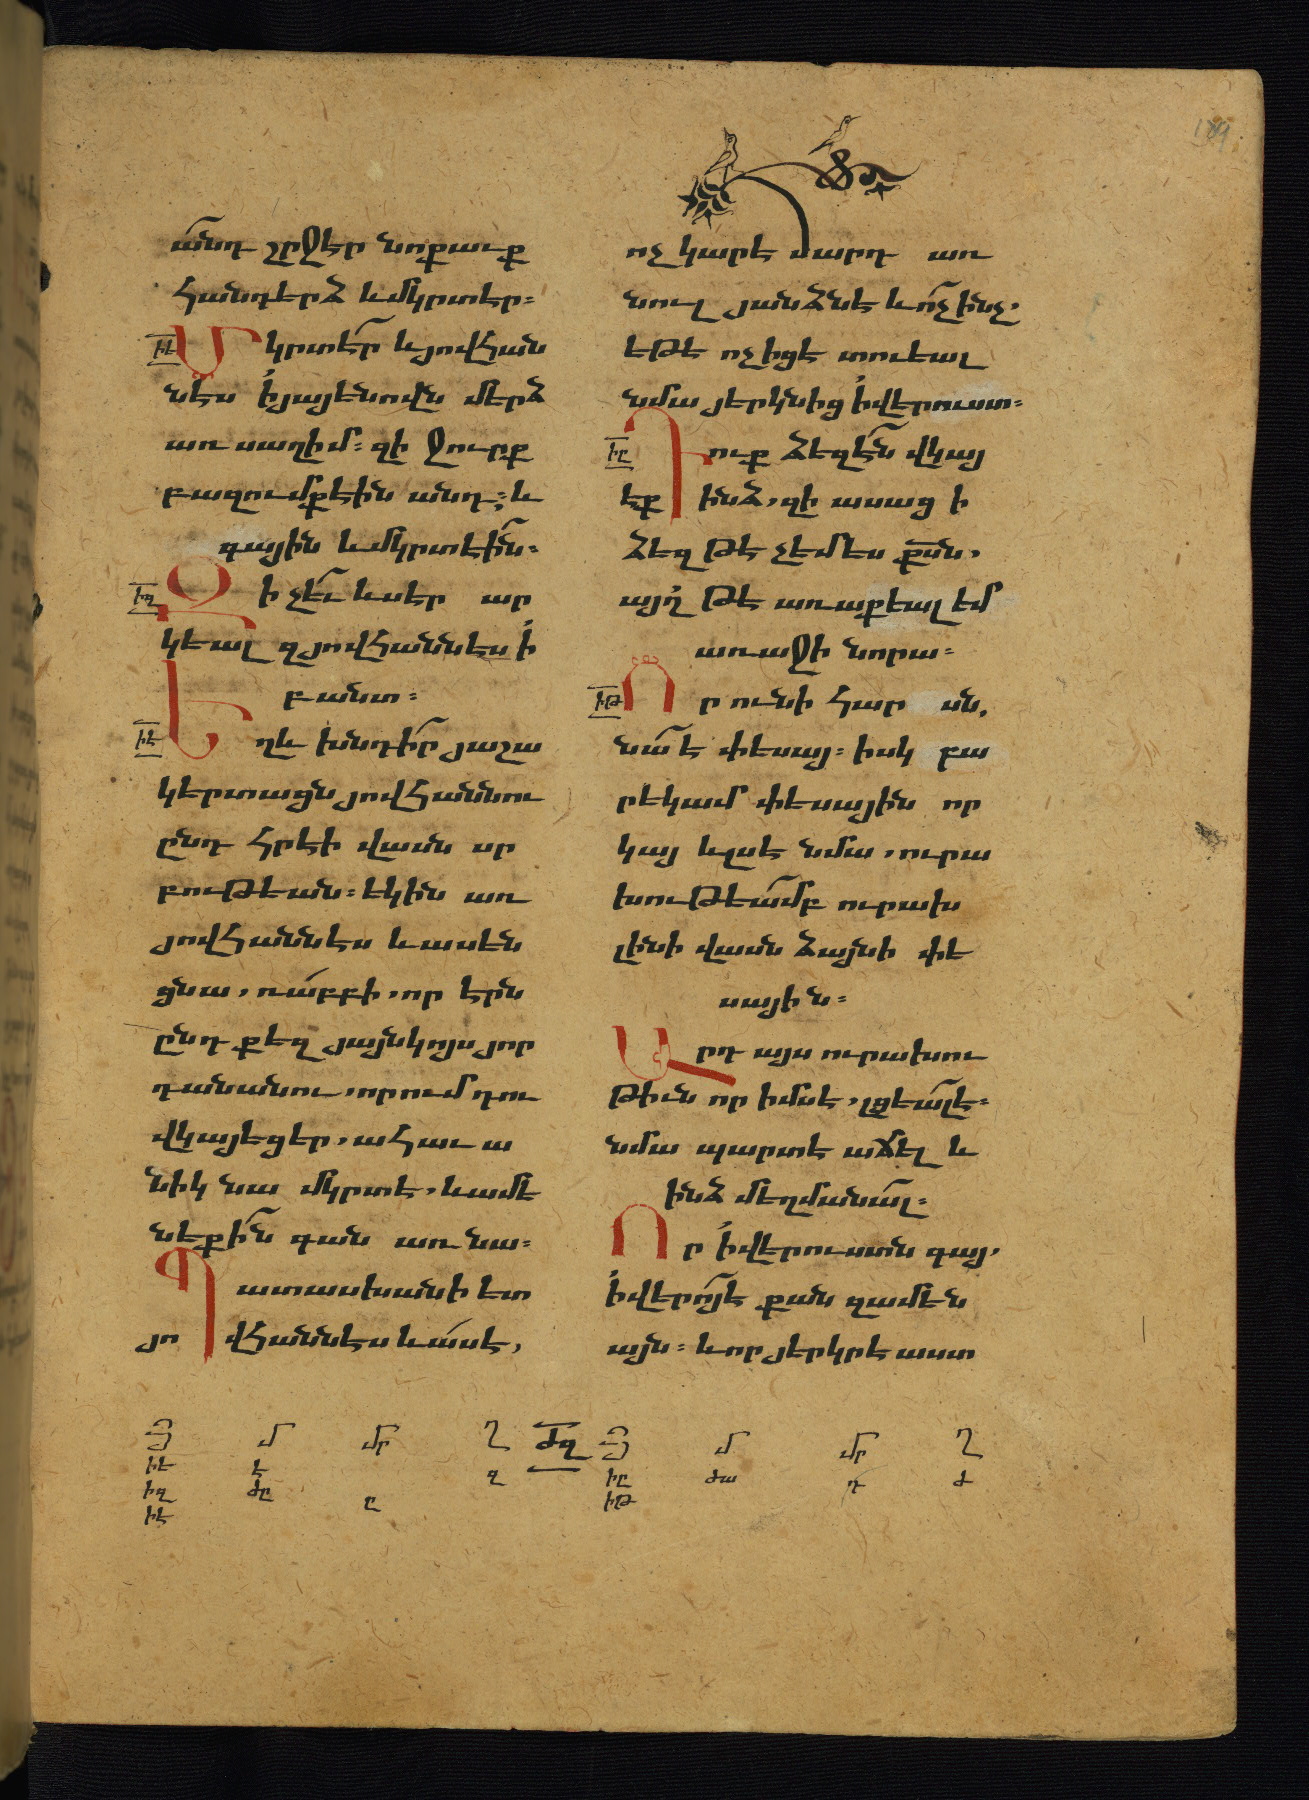 անդ շըջէր նոքաւք
հանդերձ և մկրտէր։
ԻԵ Մկրտէր և յովհան
նէս ի յայենովն մերձ
առ սաղիմ։ զի ջուրք
բազումք էին անդ։ և
գային և մկրտէին։
ԻԶ Զի չև ևս էր ար
կեալ զյովհաննէս ի
բանտ։
ԻԷ Եղև խնդիր յաշա
կերտացն յովհաննու
ընդ հրէի վասն սր
բութեան։ եկին առ
յովհաննէս և ասեն
ցնա, ռաբբի, որ էրն
ընդ քեզ յայնկոյս յոր
դանանու, որում դու
վկայեցեր, ահաւա
նիկ նա մկրտէ, և ամե
նեքին գան առ նա։
Պատասխանի ետ
յովհաննէս և ասէ,
ոչ կարէ մարդ առ
նուլ յանձնէ և ոչինչ,
եթէ ոչ իցէ տուեալ
նմա յերկնից ի վերուստ։
ԻԸ Դուք ձեզէն վկայ
էք ինձ, զի ասացի
ձեզ թէ չեմ ես քսն,
այղ թէ առաքեալ եմ
առաջի նորա։
ԻԹ Որ ունի հարսն,
նա է փեսայ։ իսկ բա
րեկամ փեսային որ
կայ և լսէ նմա, ուրա
խութեամբ ուրախ
լինի վասն ձայնի փե
սային։
Արդ այս ուրախու
թիւն որ իմս է, լցեալ է։
նմա պարտ է աճել և
ինձ մեղմանալ։
Որ ի վերուստն գայ,
ի վերոյ է քան զամեն
այն։ և որ յերկրէ աստ
Յ մ մր Ղ ԺԶ Յ մ մր Ղ
ԻԵ Է Զ ԻԸ ԺԱ Դ Ժ
ԻԶ ԺԸ Ը ԻԹ
ԻԷ